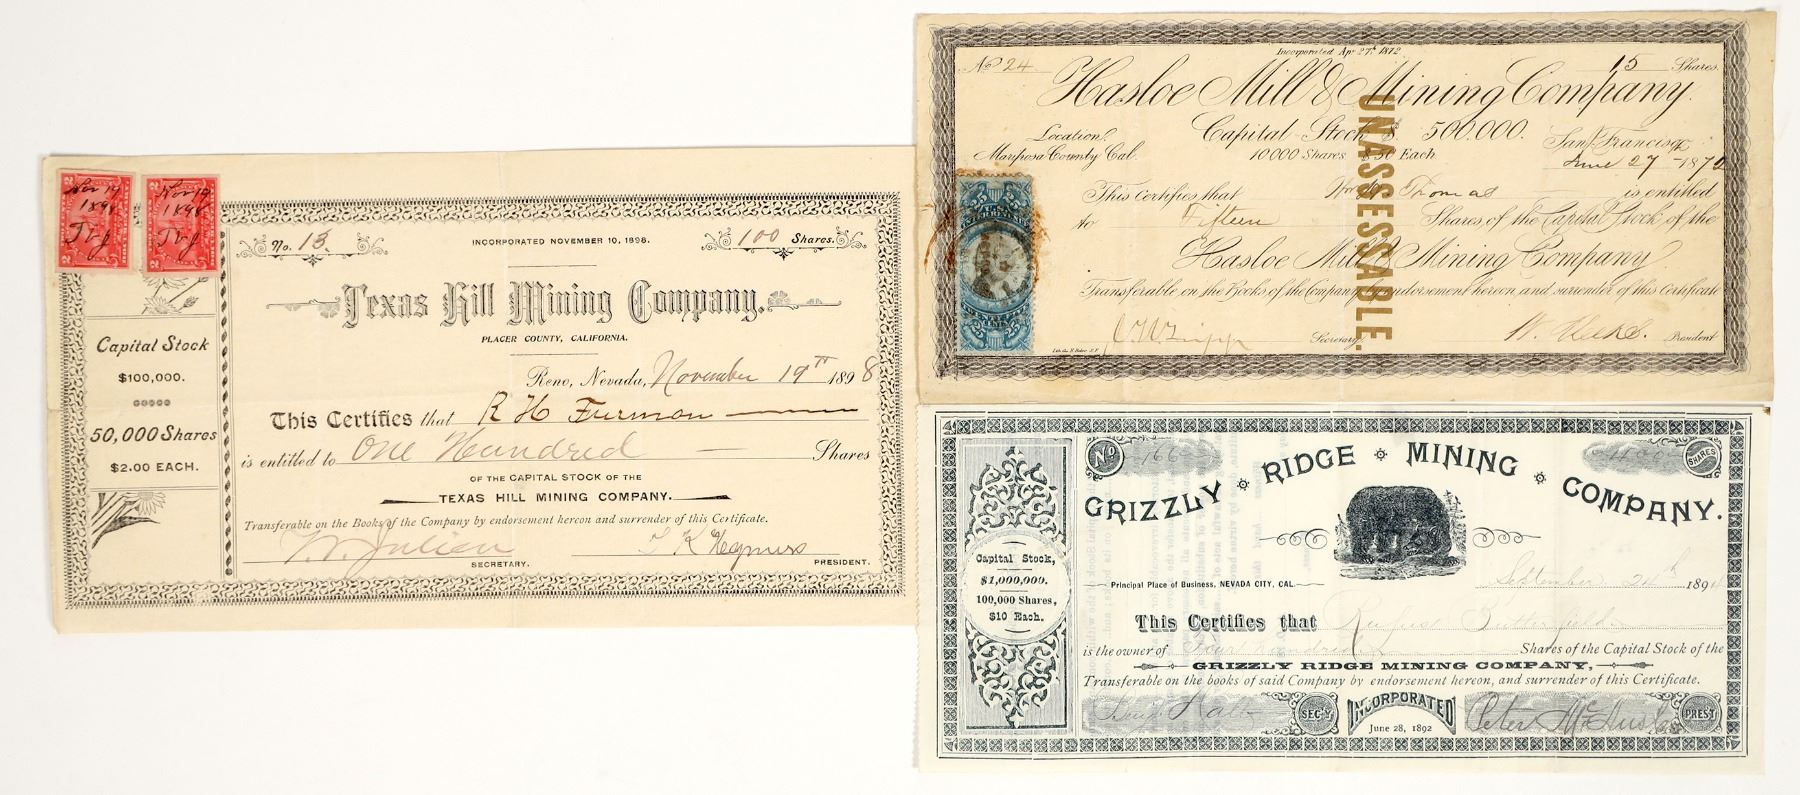 Nov 19
1898
Nov 19
1898
2
2
2
2
No. 13
INCORPORATED NOVEMBER 10, 1898.
100 Shares.
Texas Hill Mining Company.
PLACER COUNTY, CALIFORNIA.
Reno, Nevada, November 19th 1898
This Certifies that R H Furman
is entitled to One Hundred Shares
OF THE CAPITAL STOCK OF THE
TEXAS HILL MINING COMPANY.
Transferable on the Books of the Company by endorsement hereon and surrender of this Certificate.
Julien
SECRETARY.
PRESIDENT.
Capital Stock
$100,000.
50,000 Shares
$2.00 EACH.
Incorporated Apr 27th 1872
No 24
15 Shares
Hasloe Mill & Mining Company.
Capital Stock $500,000.
Location
Mariposa County Cal.
10000 Shares $50 Each
San Francisco
June 27 1872
This Certifies that Thomas is entitled
to Fifteen Shares of the Capital Stock of the
Hasloe Mill & Mining Company
Transferable on the Books of the Company by endorsement hereon and surrender of this Certificate
Secretary
President
UNASSESSABLE.
25 25
25 CENTS 25
No 166
400 SHARES
GRIZZLY RIDGE MINING COMPANY.
Principal Place of Business, NEVADA CITY, CAL.
September 24th 1894
This Certifies that Butterfield
is the owner of Four Hundred Shares of the Capital Stock of the
GRIZZLY RIDGE MINING COMPANY,
Transferable on the books of said Company by endorsement hereon, and surrender of this Certificate.
SEC'Y
INCORPORATED
June 28, 1892
Peter
PREST
Capital Stock,
$1,000,000.
100,000 Shares,
$10 Each.